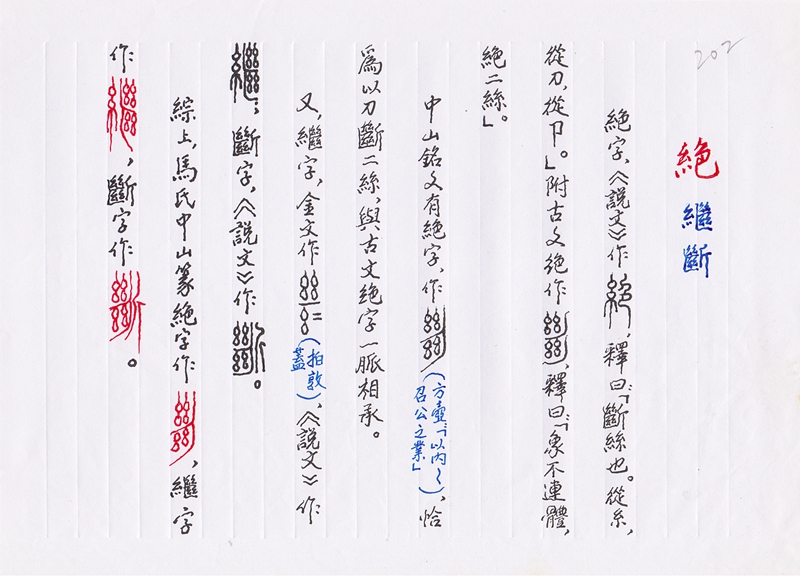 202
絕 繼 斷
絕字,《說文》作,釋曰「斷絲也。從糸,
從刀,從卩。」附古文絕作,釋曰「象不連體,
絕二絲。」
中山銘文有絕字,作(方壺「以內~召公之業」),恰
爲以刀斷二絲,與古文絕字一脈相承。
又,繼字,金文作(拍敦蓋),《說文》作
;斷字,《說文》作。
綜上,馬氏中山篆絕字作,繼字
作,斷字作。